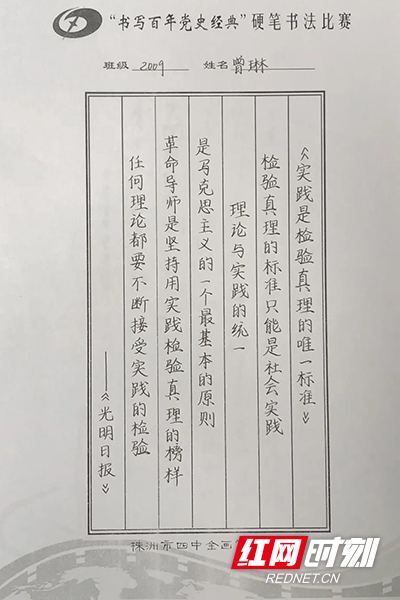 “书写百年党史经典”硬笔书法比赛
班级 2009 姓名 曾琳
《实践是检验真理的唯一标准》
检验真理的标准只能是社会实践
理论与实践的统一
是马克思主义的一个最基本的原则
革命导师是坚持用实践检验真理的榜样
任何理论都要不断接受实践的检验
——《光明日报》
株洲市四中全画
红网时刻
REDNET.CN